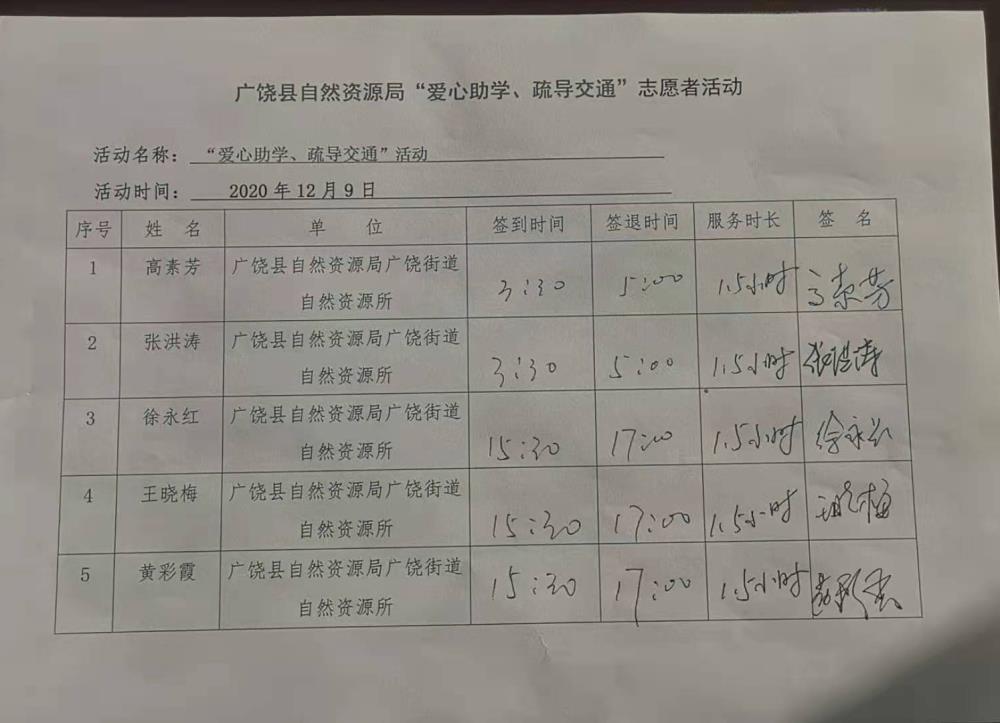 广饶县自然资源局“爱心助学、疏导交通”志愿者活动
活动名称：“爱心助学、疏导交通”活动
活动时间：2020年12月9日
序号 姓 名 单 位 签到时间 签退时间 服务时长 签 名
1 高素芳 广饶县自然资源局广饶街道
自然资源所 3:30 5:00 1.5小时 高素芳
2 张洪涛 广饶县自然资源局广饶街道
自然资源所 3:30 5:00 1.5小时 张洪涛
3 徐永红 广饶县自然资源局广饶街道
自然资源所 15:30 17:00 1.5小时 徐永红
4 王晓梅 广饶县自然资源局广饶街道
自然资源所 15:30 17:00 1.5小时 王晓梅
5 黄彩霞 广饶县自然资源局广饶街道
自然资源所 15:30 17:00 1.5小时 黄彩霞